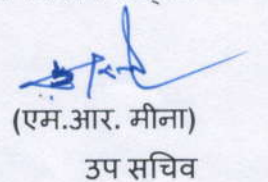 (एम.आर. मीना)
उप सचिव